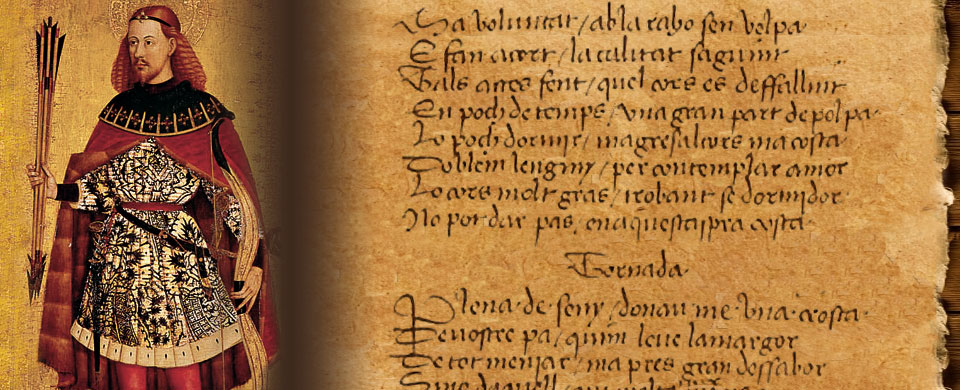 Sa voluntat / abla raho sen volpa
E fan acort / la calitat saguint
Tals actes fent / quel cors es deffallint
En poch de temps / vna gran part de polpa·
Lo poch dormir / magresalcors macosta·
Doblem lenginy / per contemplar amor
Lo cors molt gras / trobant se dormidor
No pot dar pas / enaquestaspra costa·
Tornada
Plena de seny / donau me vna crosta·
De vostre pa / quim leue lamargor
De tot meniar / ma pres gran dessabor
Sino daquell / qui molta